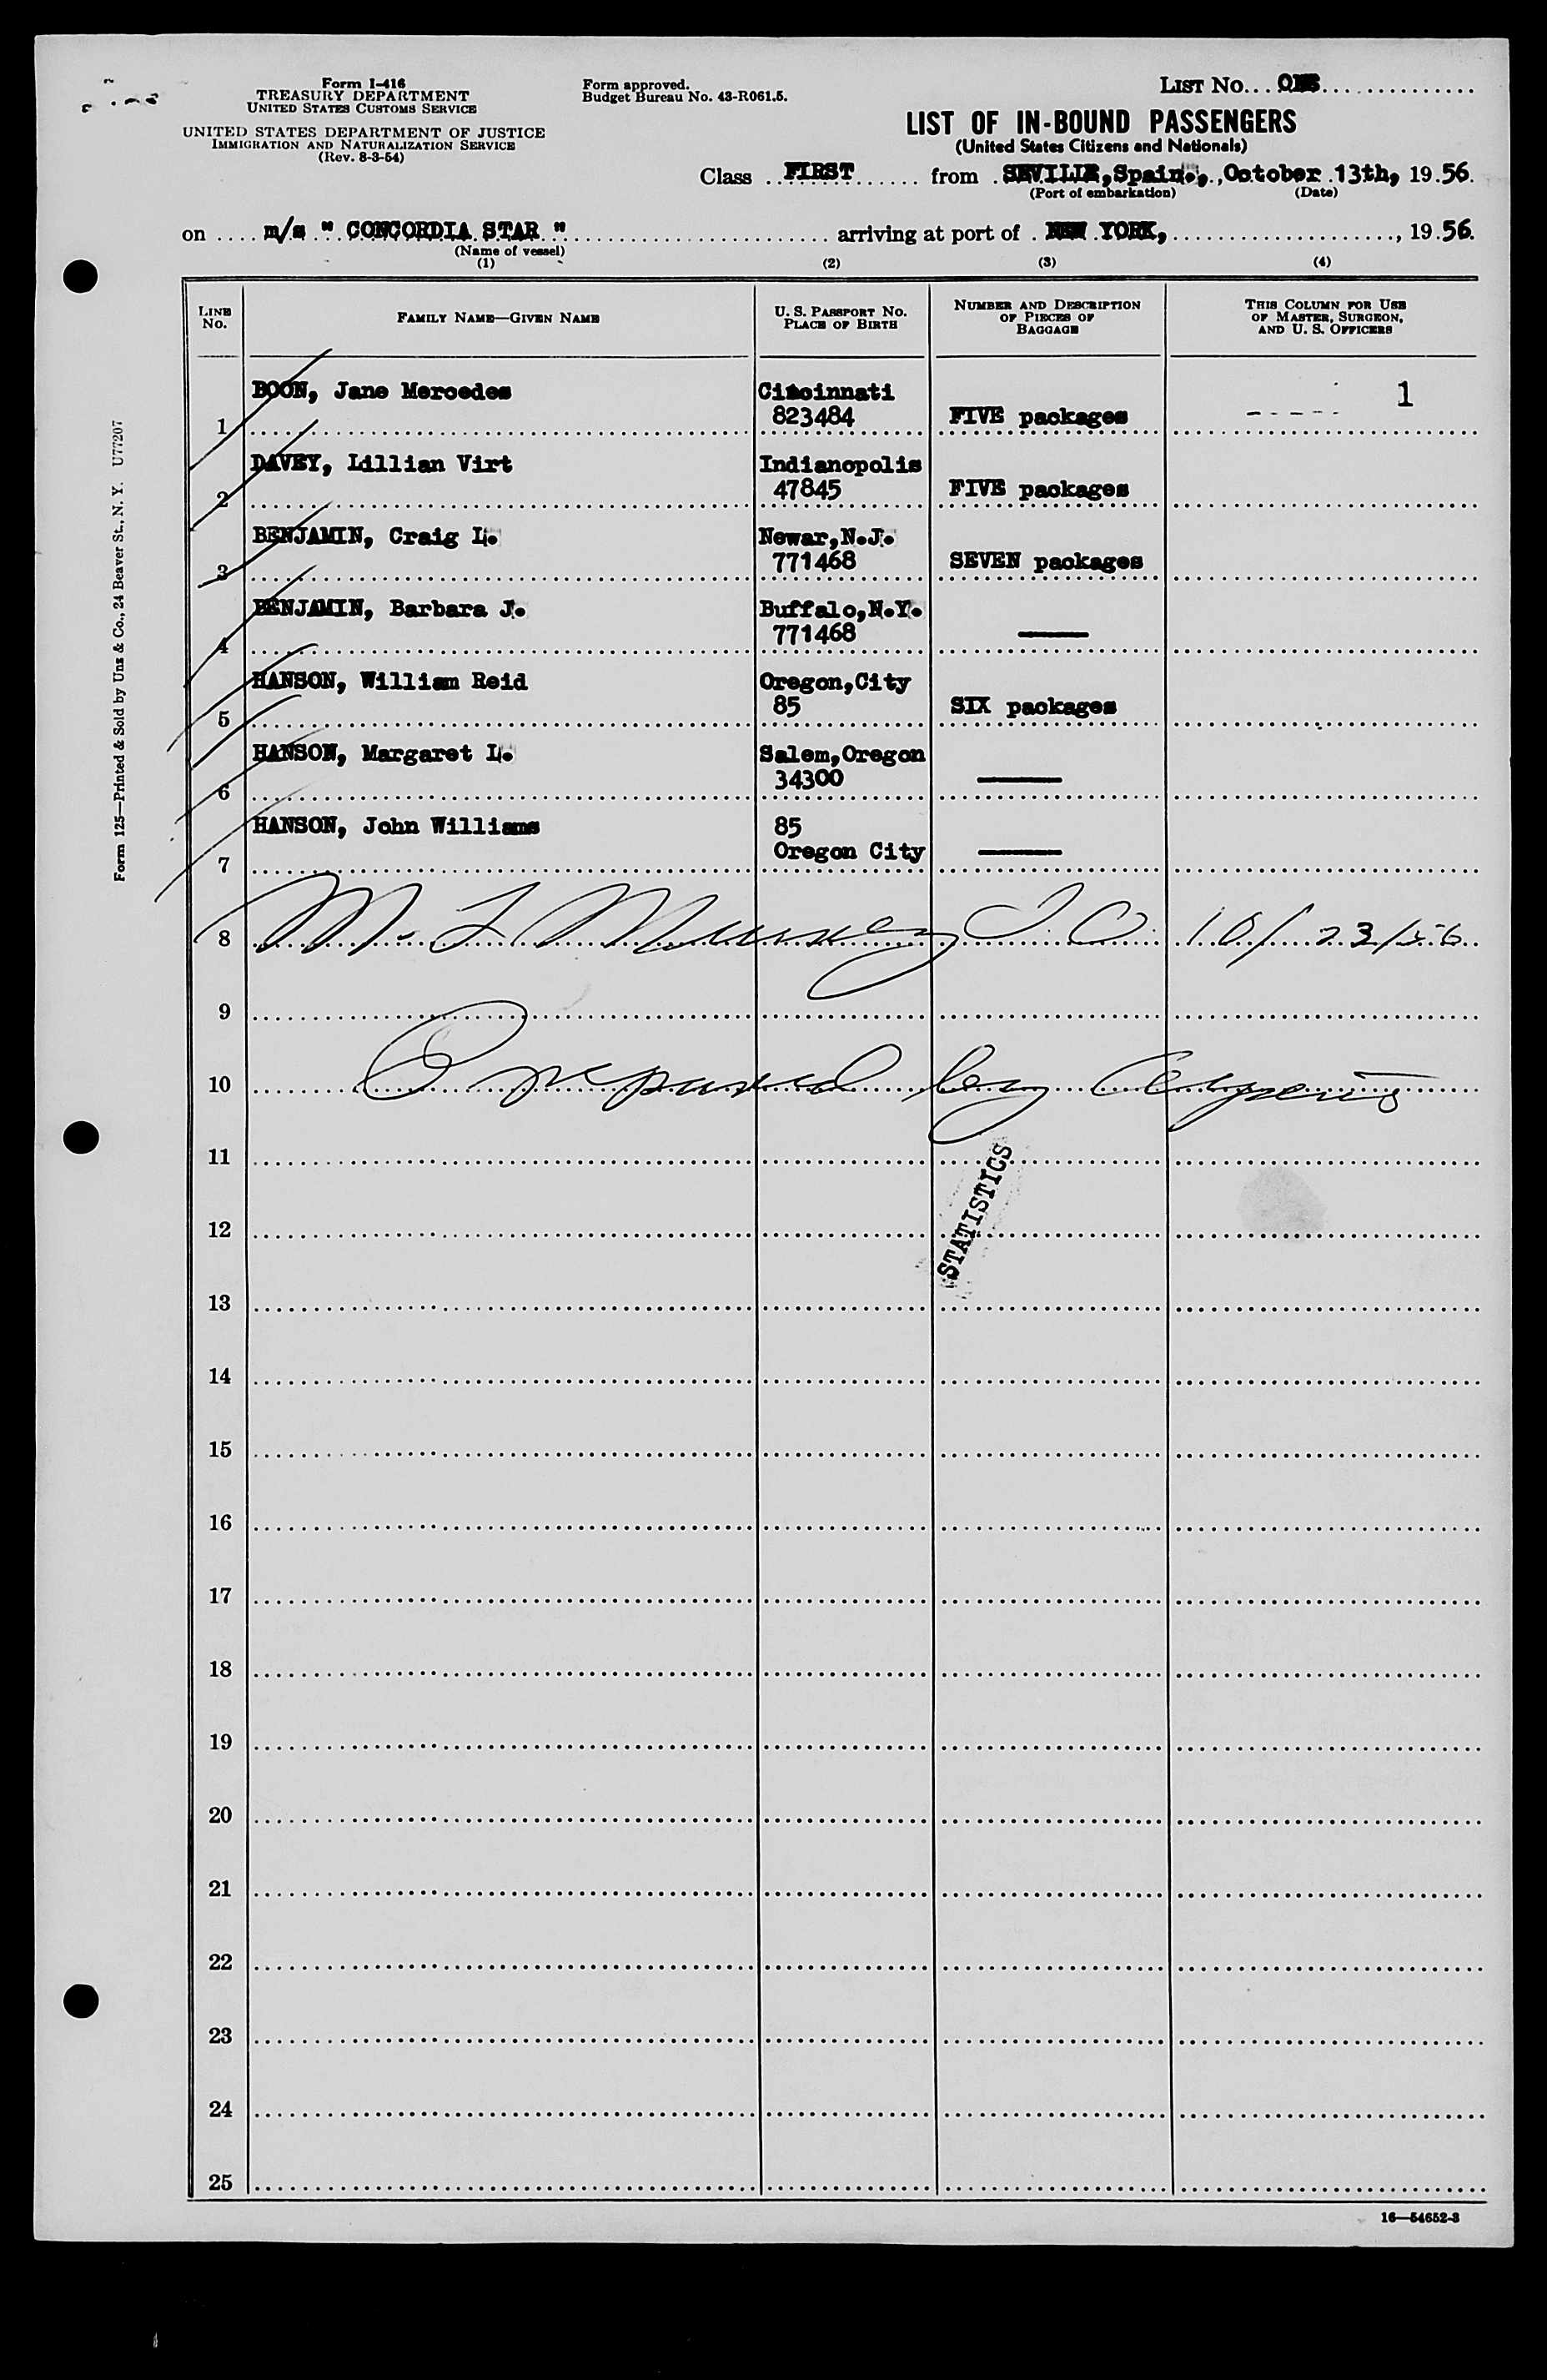 Form I-416
TREASURY DEPARTMENT
UNITED STATES CUSTOMS SERVICE
UNITED STATES DEPARTMENT OF JUSTICE
IMMIGRATION AND NATURALIZATION SERVICE
(Rev. 8-3-54)
Form approved.
Budget Bureau No. 43-R061.5.
LIST No. ONE
LIST OF IN-BOUND PASSENGERS
(United States Citizens and Nationals)
Class FIRST from SEVILLE, Spain., October 13th, 1956.
(Port of embarkation) (Date)
on m/s " CONCORDIA STAR " arriving at port of NEW YORK, , 1956.
(Name of vessel)
(1) (2) (3) (4)
LINE No. FAMILY NAME—GIVEN NAME U. S. PASSPORT No. PLACE OF BIRTH NUMBER AND DESCRIPTION OF PIECES OF BAGGAGE THIS COLUMN FOR USE OF MASTER, SURGEON, AND U. S. OFFICERS
BOON, Jane Mercedes Cincinnati 1
1 823484 FIVE packages
DAVEY, Lillian Virt Indianopolis
2 47845 FIVE packages
BENJAMIN, Craig L. Newar,N.J.
3 771468 SEVEN packages
BENJAMIN, Barbara J. Buffalo,N.Y.
4 771468
HANSON, William Reid Oregon,City
5 85 SIX packages
HANSON, Margaret L. Salem,Oregon
6 34300
HANSON, John Williams 85
7 Oregon City
8 M. L. I.O. 10/23/56
9
10 Prepared by
11
STATISTICS
12
13
14
15
16
17
18
19
20
21
22
23
24
25
16—54652-3
Form 125—Printed & Sold by Unz & Co., 24 Beaver St., N. Y. U77207